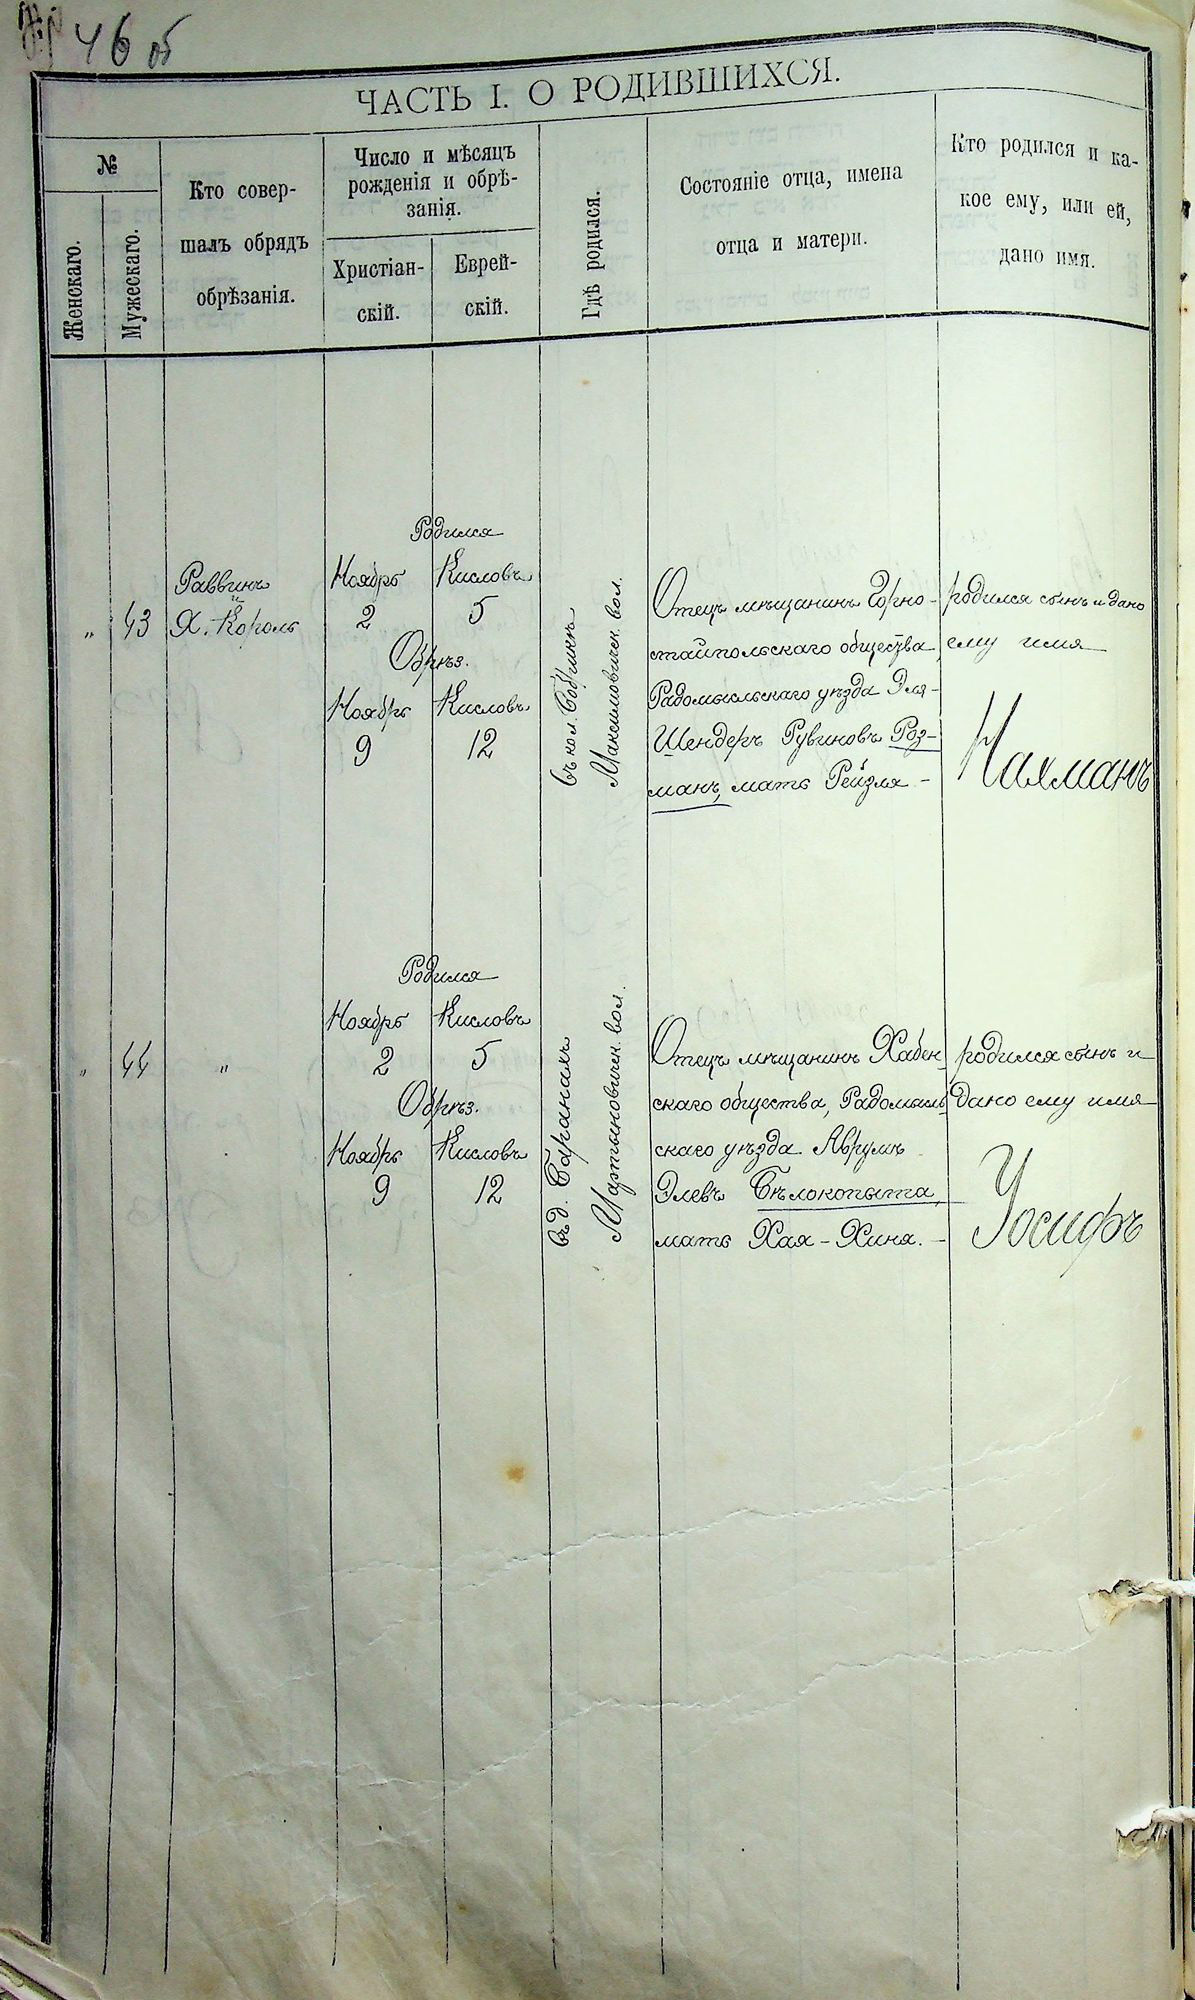 46 об
ЧАСТЬ I. О РОДИВШИХСЯ.
№
Женскаго.
Мужескаго.
Кто совер-
шалъ обрядъ
обрѣзанія.
Число и мѣсяцъ
рожденія и обрѣ-
занія.
Христіан-
скій.
Еврей-
скій.
Гдѣ родился.
Состояніе отца, имена
отца и матери.
Кто родился и ка-
кое ему, или ей,
дано имя.
„
43
Раввинъ
Х. Король
Родился
Ноябрь Кисловъ
2 5
Обрѣз.
Ноябрь Кисловъ
9 12
Въ кол.
Максимовичск. вол.
Отецъ мѣщанинъ Горно-
стайпольскаго общества,
Радомысльскаго уѣзда Эля-
Шендеръ Рувиновъ Роз-
манъ, мать Рейзля. -
родился сынъ и дано
ему имя
Нахманъ
„
44
„
Родился
Ноябрь Кисловъ
2 5
Обрѣз.
Ноябрь Кисловъ
9 12
Въ д. Баранахъ
Мартыновичск. вол.
Отецъ мѣщанинъ Хабен
скаго общества, Радомысль
скаго уѣзда Аврумъ
Элевъ Бѣлокопыта,
мать Хая - Хиня. -
родился сынъ и
дано ему имя
Іосифъ